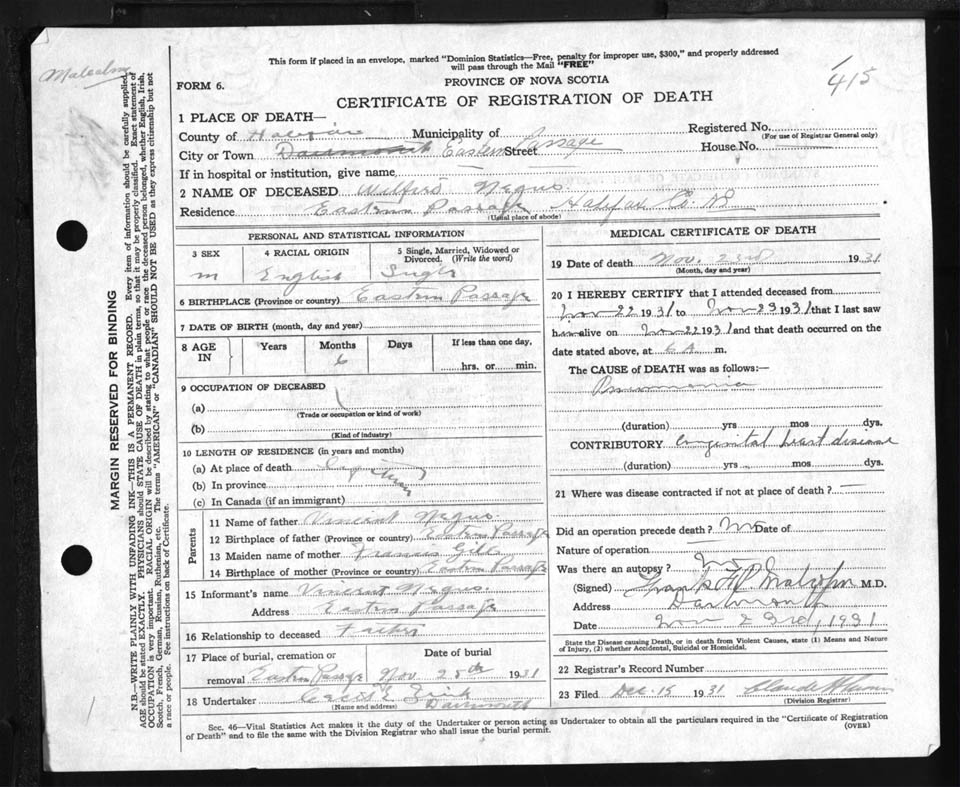 This form if placed in an envelope, marked "Dominion Statistics—Free, penalty for improper use, $300," and properly addressed
will pass through the Mail "FREE"
415
Malcolm
FORM 6.
PROVINCE OF NOVA SCOTIA
CERTIFICATE OF REGISTRATION OF DEATH
MARGIN RESERVED FOR BINDING
N.B.—WRITE PLAINLY WITH UNFADING INK—THIS IS A PERMANENT RECORD. Every item of information should be carefully supplied.
AGE should be stated EXACTLY. PHYSICIANS should STATE CAUSE OF DEATH in plain terms, so that it may be properly classified. Exact statement of
OCCUPATION is very important. RACIAL ORIGIN will be described by stating to what people or race the deceased person belonged, whether English, Irish,
Scotch, French, German, Russian, Ruthenian, etc. The terms "AMERICAN" or "CANADIAN" SHOULD NOT BE USED as they express citizenship but not
a race or people. See instructions on back of Certificate.
1 PLACE OF DEATH—
County of Halifax Municipality of Registered No.
(For use of Registrar General only)
City or Town Dartmouth Eastern Street Passage House No.
If in hospital or institution, give name
2 NAME OF DECEASED Wilfred Negus
Residence Eastern Passage Halifax Co. NS
(Usual place of abode)
PERSONAL AND STATISTICAL INFORMATION
3 SEX 4 RACIAL ORIGIN 5 Single, Married, Widowed or Divorced. (Write the word)
m English Single
6 BIRTHPLACE (Province or country) Eastern Passage
7 DATE OF BIRTH (month, day and year)
8 AGE IN Years Months Days If less than one day,
6 hrs. or min.
9 OCCUPATION OF DECEASED
(a)
(Trade or occupation or kind of work)
(b)
(Kind of industry)
10 LENGTH OF RESIDENCE (in years and months)
(a) At place of death
(b) In province
(c) In Canada (if an immigrant)
Parents
11 Name of father Vincent Negus
12 Birthplace of father (Province or country) Eastern Passage
13 Maiden name of mother Frances Gill
14 Birthplace of mother (Province or country) Eastern Passage
15 Informant's name Vincent Negus
Address Eastern Passage
16 Relationship to deceased Father
17 Place of burial, cremation or removal Date of burial
Eastern Passage Nov 25th 1931
18 Undertaker
(Name and address)
Dartmouth
MEDICAL CERTIFICATE OF DEATH
19 Date of death Nov. 23rd 1931
(Month, day and year)
20 I HEREBY CERTIFY that I attended deceased from
Nov 22 1931 to Nov 23 1931 that I last saw
him alive on Nov 22 1931 and that death occurred on the
date stated above, at 6 A m.
The CAUSE of DEATH was as follows:—
Pneumonia
(duration) yrs mos dys.
CONTRIBUTORY Congenital heart disease
(duration) yrs. mos. dys.
21 Where was disease contracted if not at place of death?
Did an operation precede death? No Date of
Nature of operation
Was there an autopsy? No
(Signed) Frank Malcolm M.D.
Address Dartmouth
Date Nov 23rd, 1931
State the Disease causing Death, or in death from Violent Causes, state (1) Means and Nature
of Injury, (2) whether Accidental, Suicidal or Homicidal.
22 Registrar's Record Number
23 Filed Dec. 15 1931 Claude
(Division Registrar)
Sec. 46—Vital Statistics Act makes it the duty of the Undertaker or person acting as Undertaker to obtain all the particulars required in the "Certificate of Registration
of Death" and to file the same with the Division Registrar who shall issue the burial permit.
(OVER)